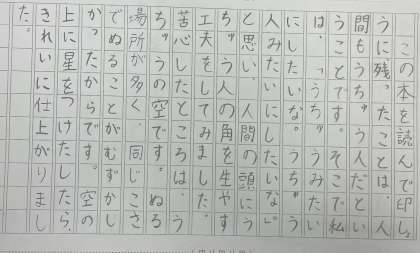 この本を読んで印しょ
うに残ったことは、人
間もうちゅう人だとい
うことです。そこで私
は、「うちゅうみたい
にしたいな。」「うちゅう
人みたいにしたいな。」
と思い、人間の頭にう
ちゅう人の角を生やす
工夫をしてみました。
苦心したところは、う
ちゅうの空です。ぬる
場所が多く、同じこさ
でぬることがむずかし
かったからです。空の
上に星をつけたしたら、
きれいに仕上がりまし
た。